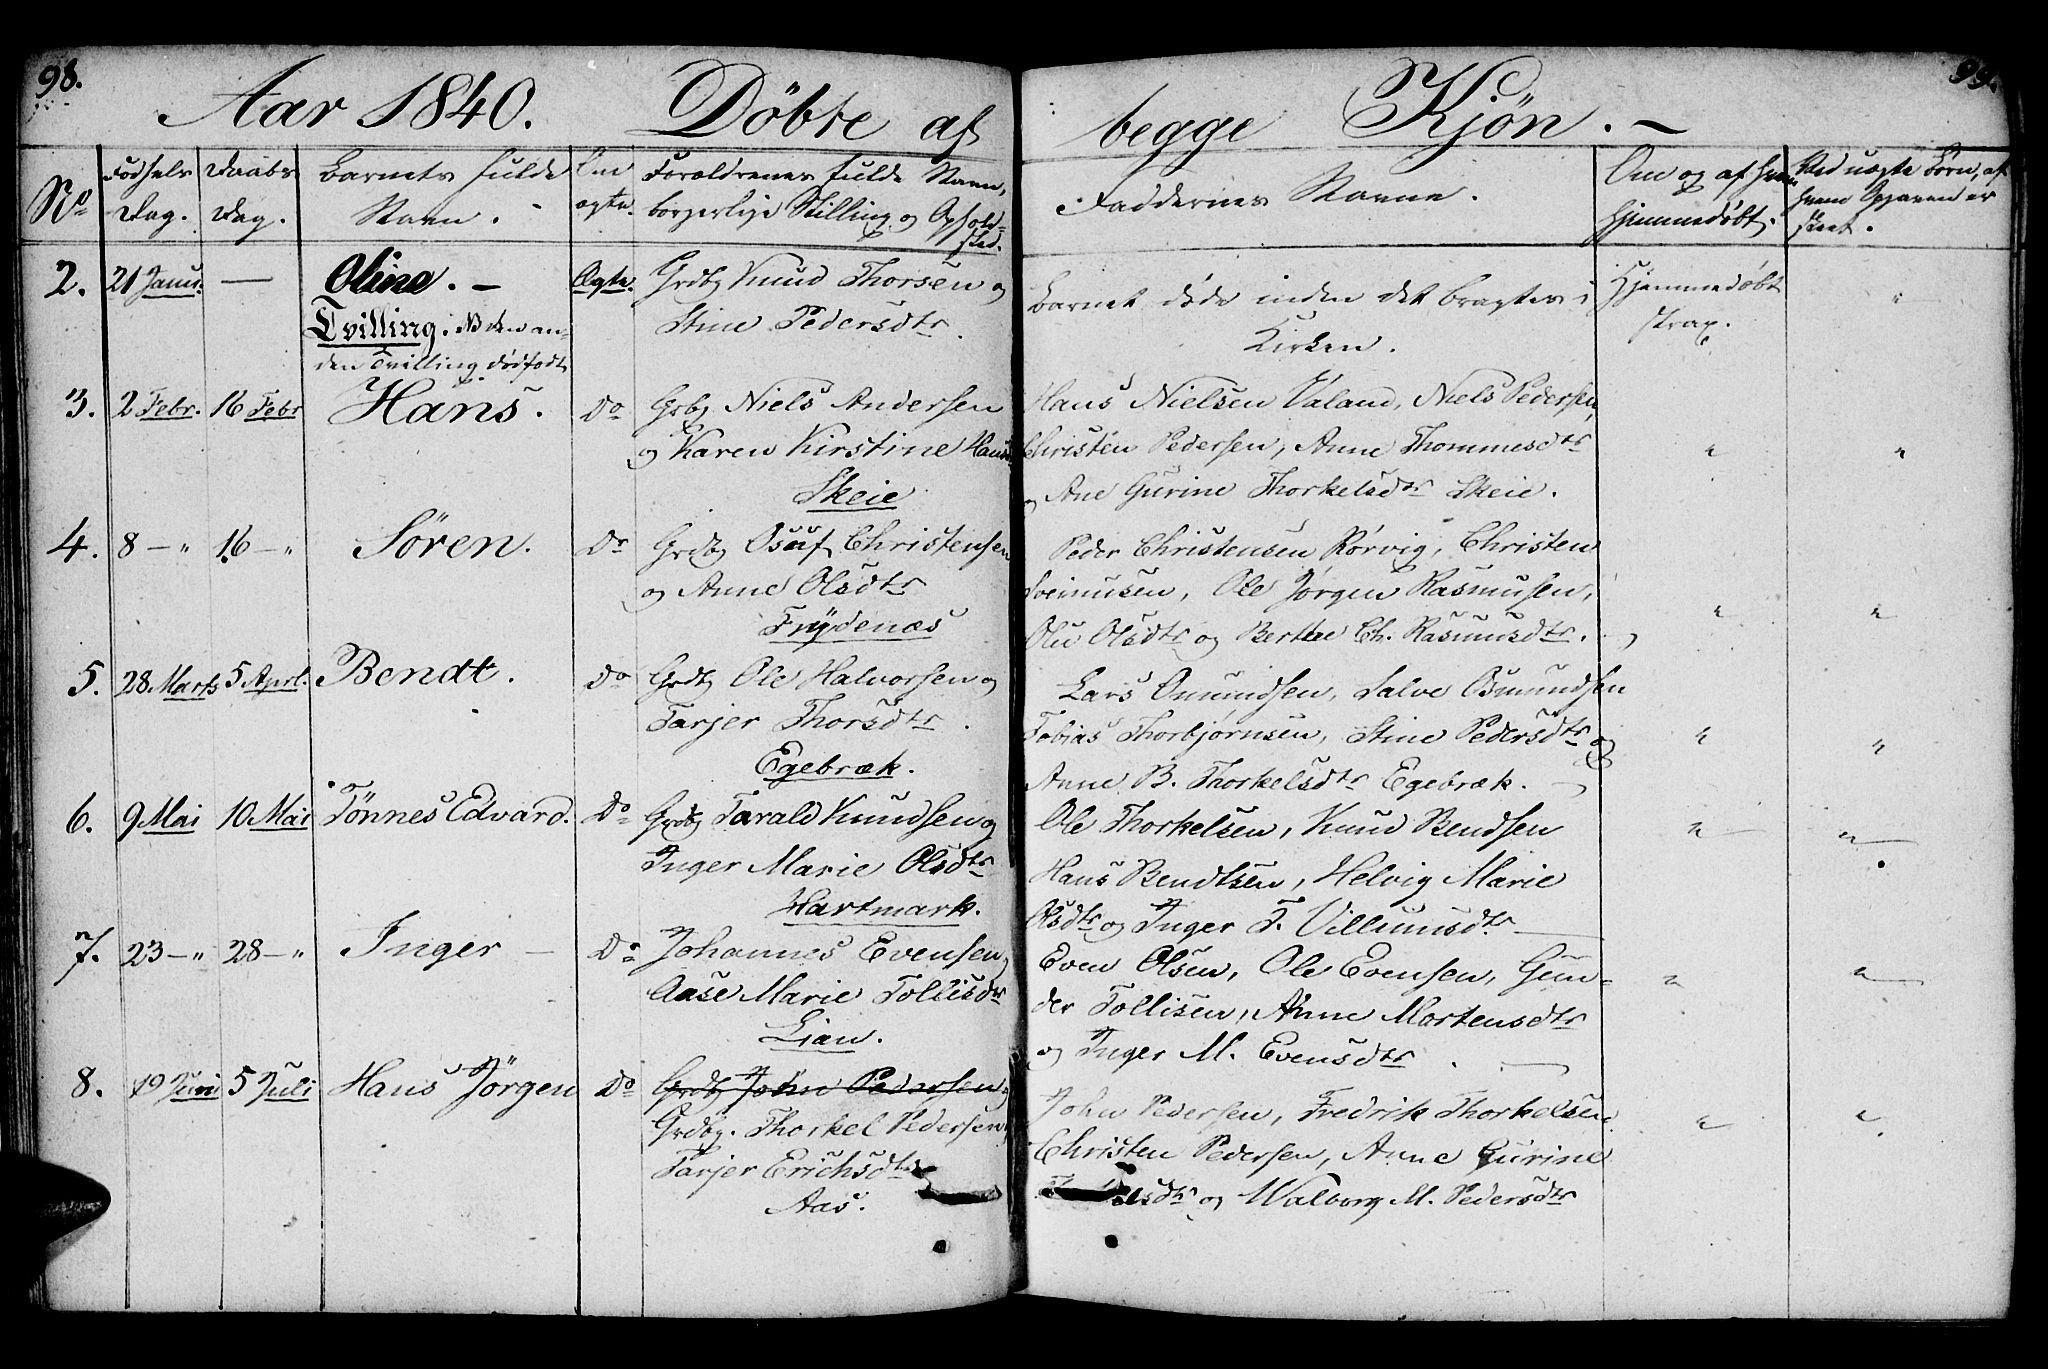 98.
Aar 1840. Döbte af
No
Födsels
Dag.
Daabs
Dag.
Barnets fulde
Navn.
Om
ægte.
Forældrenes fulde Navn,
borgerlige Stilling og Ophold-
sted.
2. 21 Janu. — Oline. — Ægte. Grdb Knud Thorsen og
Tvilling. NB den an- Stine Pedersdtr.
den Tvilling dødfødt
3. 2 Febr. 16 Febr Hans. Do Grbg Niels Andersen
og Karen Kirstine Hansd
Skeie
4. 8 — " 16 — " Sören. Do Grdbg Osuf Christensen
og Anne Olsdtr
Frydenæs
5. 28 Marts 5 Aprl. Bendt. Do Grdb Ole Halvorsen og
Tarjer Thorsdtr.
Egebræk.
6. 9 Mai 10 Mai Tönnes Edvard. Do Grdbg Tarald Knudsen og
Inger Marie Olsdtr
Hartmark.
7. 23 — " 28 — " Inger — Do Johannes Evensen og
Aase Marie Tollisdtr
Lian.
8. 19 Juni 5 Juli Hans Jörgen Do Grdb John Pedersen og
Grdbg. Thorkel Pedersen,
Tarjer Erichsdtr
Aas.
99.
begge Kjön. —
Faddernes Navne.
Om og af hvem
hjemmedøbt.
Ved uægte Børn, af
hvem Opgaven er
skeet.
Barnet døde inden det bragtes i Hjemmedøbt "
Kirken. strax.
Hans Nielsen Valand, Niels Pedersen,
Christen Pedersen, Anne Thommesdtr " "
og Ane Gurine Thorkelsdtr Skeie.
Peder Christensen Rørvig, Christen
Ole Jørgen Rasmusen,
Olsdtr og Berthe Ch. Rasmusdtr. " "
Lars Omundsen, Salve Osmundsen
Tobias Thorbjørnsen, Stine Pedersdtr og " "
Anne B. Thorkelsdtr Egebræk. —
Ole Thorkelsen, Knud Bendsen " "
Hans Bendtsen, Helvig Marie
Olsdtr og Inger T. Villumsdtr —
Even Olsen, Ole Evensen, Gun- " "
der Tollisen, Anne Mortensdtr
og Inger M. Evensdtr. —
John Pedersen, Fredrik Thorkelsen " "
Christen Pedersen, Anne Gurine
og Walborg M. Pedersdtr